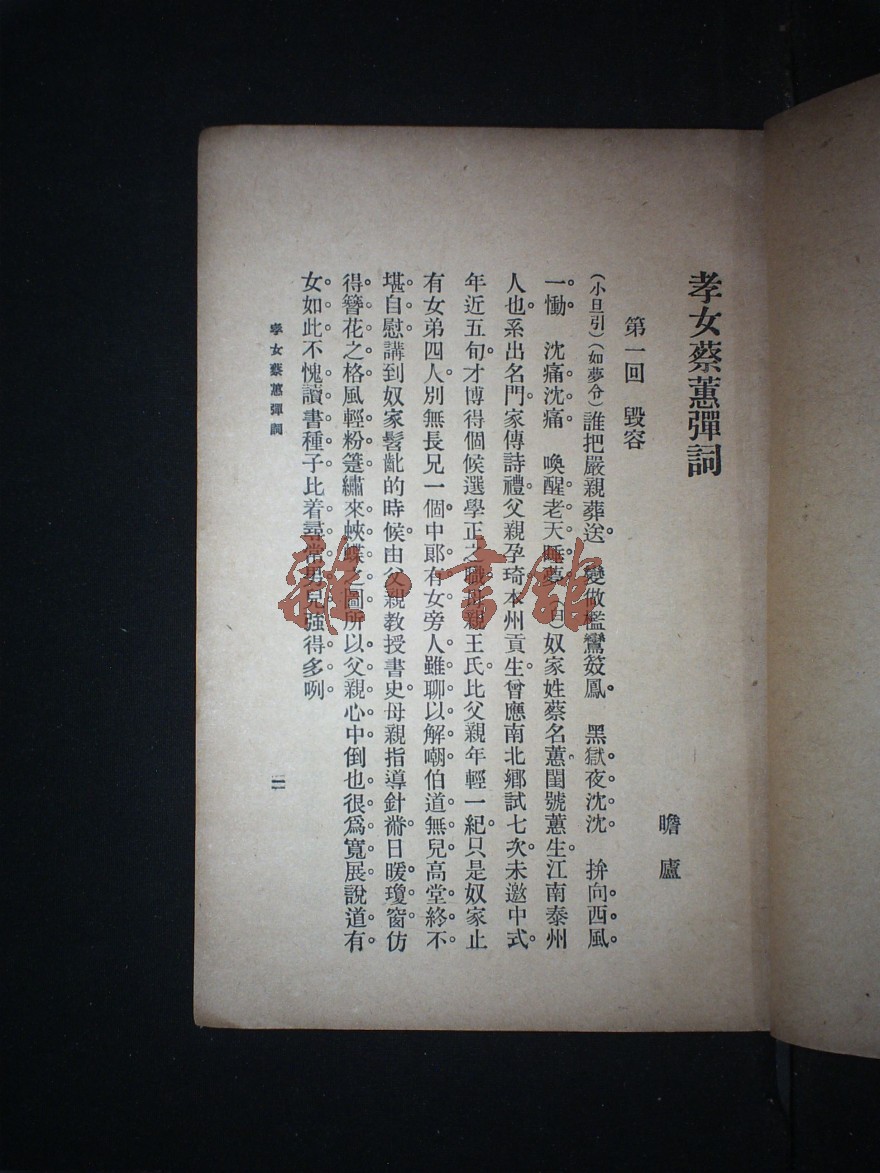 孝女蔡蕙彈詞
瞻廬
第一回　毀容
（小旦引）（如夢令）誰把嚴親葬送。變做檻鸞笯鳳。黑獄夜沈沈。拚向西風。
一慟　沈痛沈痛　喚醒老天睡夢（白）奴家姓蔡名蕙閨號蕙生江南泰州
人也系出名門家傳詩禮父親孕琦本州貢生曾應南北鄉試七次未邀中式
年近五旬才博得個候選學正之職母親王氏比父親年輕一紀只是奴家止
有女弟四人別無長兄一個中郎有女旁人雖聊以解嘲伯道無兒高堂終不
堪自慰講到奴家髫齔的時候由父親教授書史母親指導針黹日暖瓊窗仿
得簪花之格風輕粉籆繡來蛺蝶之圖所以父親心中倒也很爲寬展說道有
女如此不愧讀書種子比着尋常男兒強得多咧
孝女蔡蕙彈詞
一
雜·書館